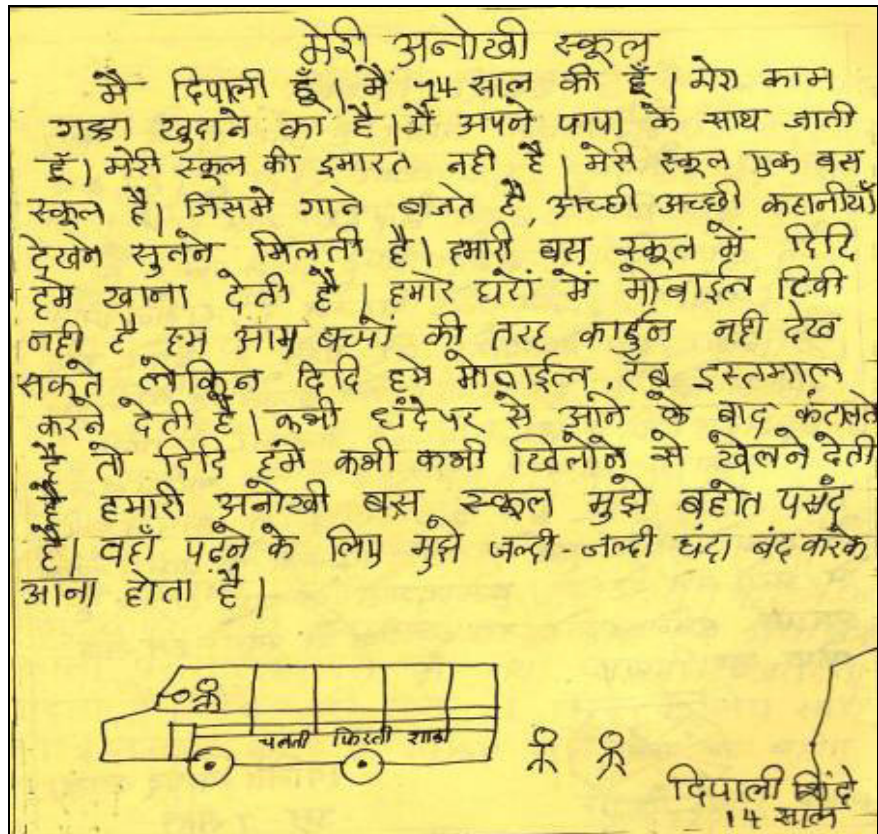 मेरी अनोखी स्कूल
मै दिपाली हूँ। मै 14 साल की हूँ। मेरा काम
गड्डा खुदाने का है। मैं अपने पापा के साथ जाती
हूँ। मेरी स्कूल की इमारत नही है। मेरी स्कूल एक बस
स्कूल है। जिसमे गाने बजते है, अच्छी अच्छी कहानीयाँ
देखने सुनने मिलती है। हमारी बस स्कूल में दिदि
हमे खाना देती है। हमारे घरों में मोबाईल टिवी
नही है हम आम बच्चों की तरह कार्टुन नही देख
सकते लेकिन दिदि हमे मोबाईल, टॅब इस्तमाल
करने देती है। कभी धंदेपर से आने के बाद कंटालते
है तो दिदि हमे कभी कभी खिलोने से खेलने देती
है हमारी अनोखी बस स्कूल मुझे बहोत पसंद
है। वहाँ पढ़ने के लिए मुझे जल्दी-जल्दी धंदा बंद करके
आना होता है।
चलती फिरती शाळा
दिपाली शिंदे
14 साल